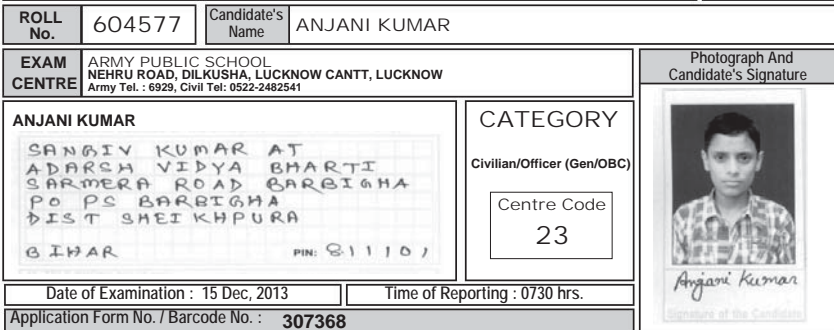 ROLL No. 604577 Candidate's Name ANJANI KUMAR
EXAM CENTRE
ARMY PUBLIC SCHOOL
NEHRU ROAD, DILKUSHA, LUCKNOW CANTT, LUCKNOW
Army Tel. : 6929, Civil Tel: 0522-2482541
Photograph And
Candidate's Signature
ANJANI KUMAR
SANGIV KUMAR AT
ADARSH VIDYA BHARTI
SARMERA ROAD BARBIGHA
PO PS BARBIGHA
DIST SHEIKHPURA
BIHAR PIN: 811101
CATEGORY
Civilian/Officer (Gen/OBC)
Centre Code
23
Anjani Kumar
Signature of the Candidate
Date of Examination : 15 Dec, 2013 Time of Reporting : 0730 hrs.
Application Form No. / Barcode No. : 307368